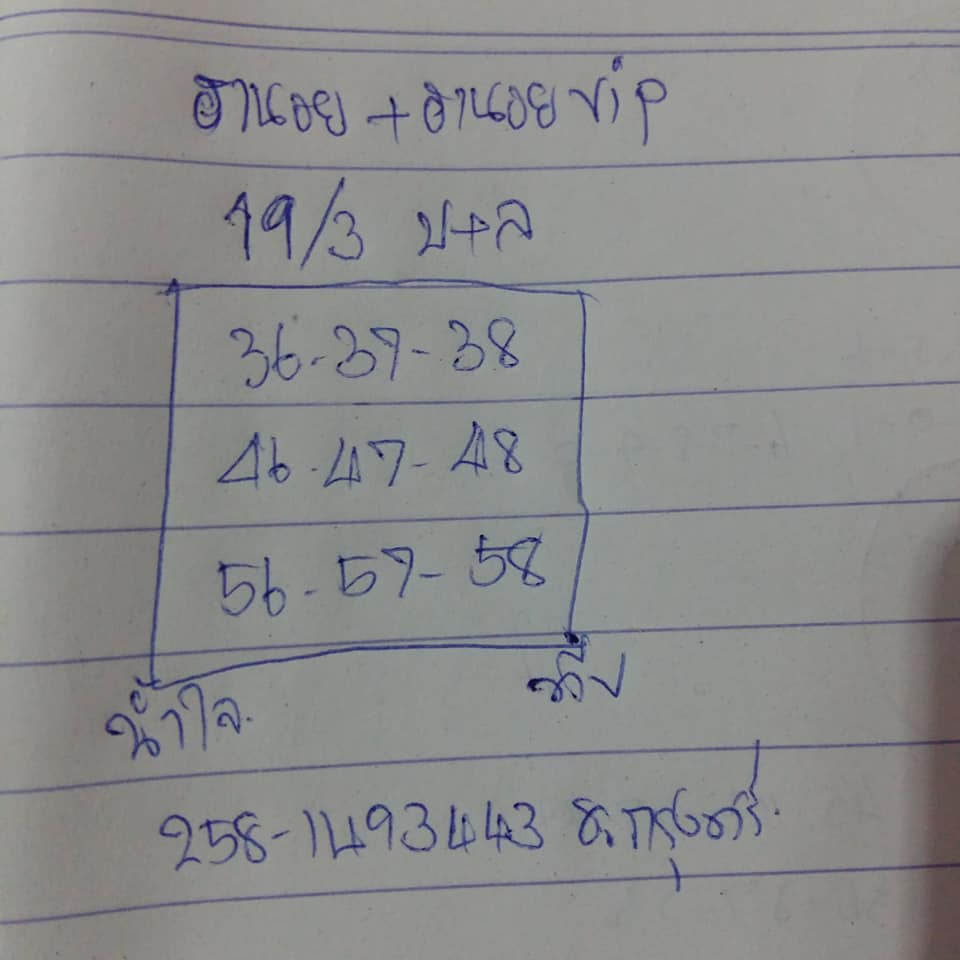 ฮานอย + ฮานอย vip
19/3 บ+ล
36-37-38
46-47-48
56-57-58
น้ำใจ.
258-1493443